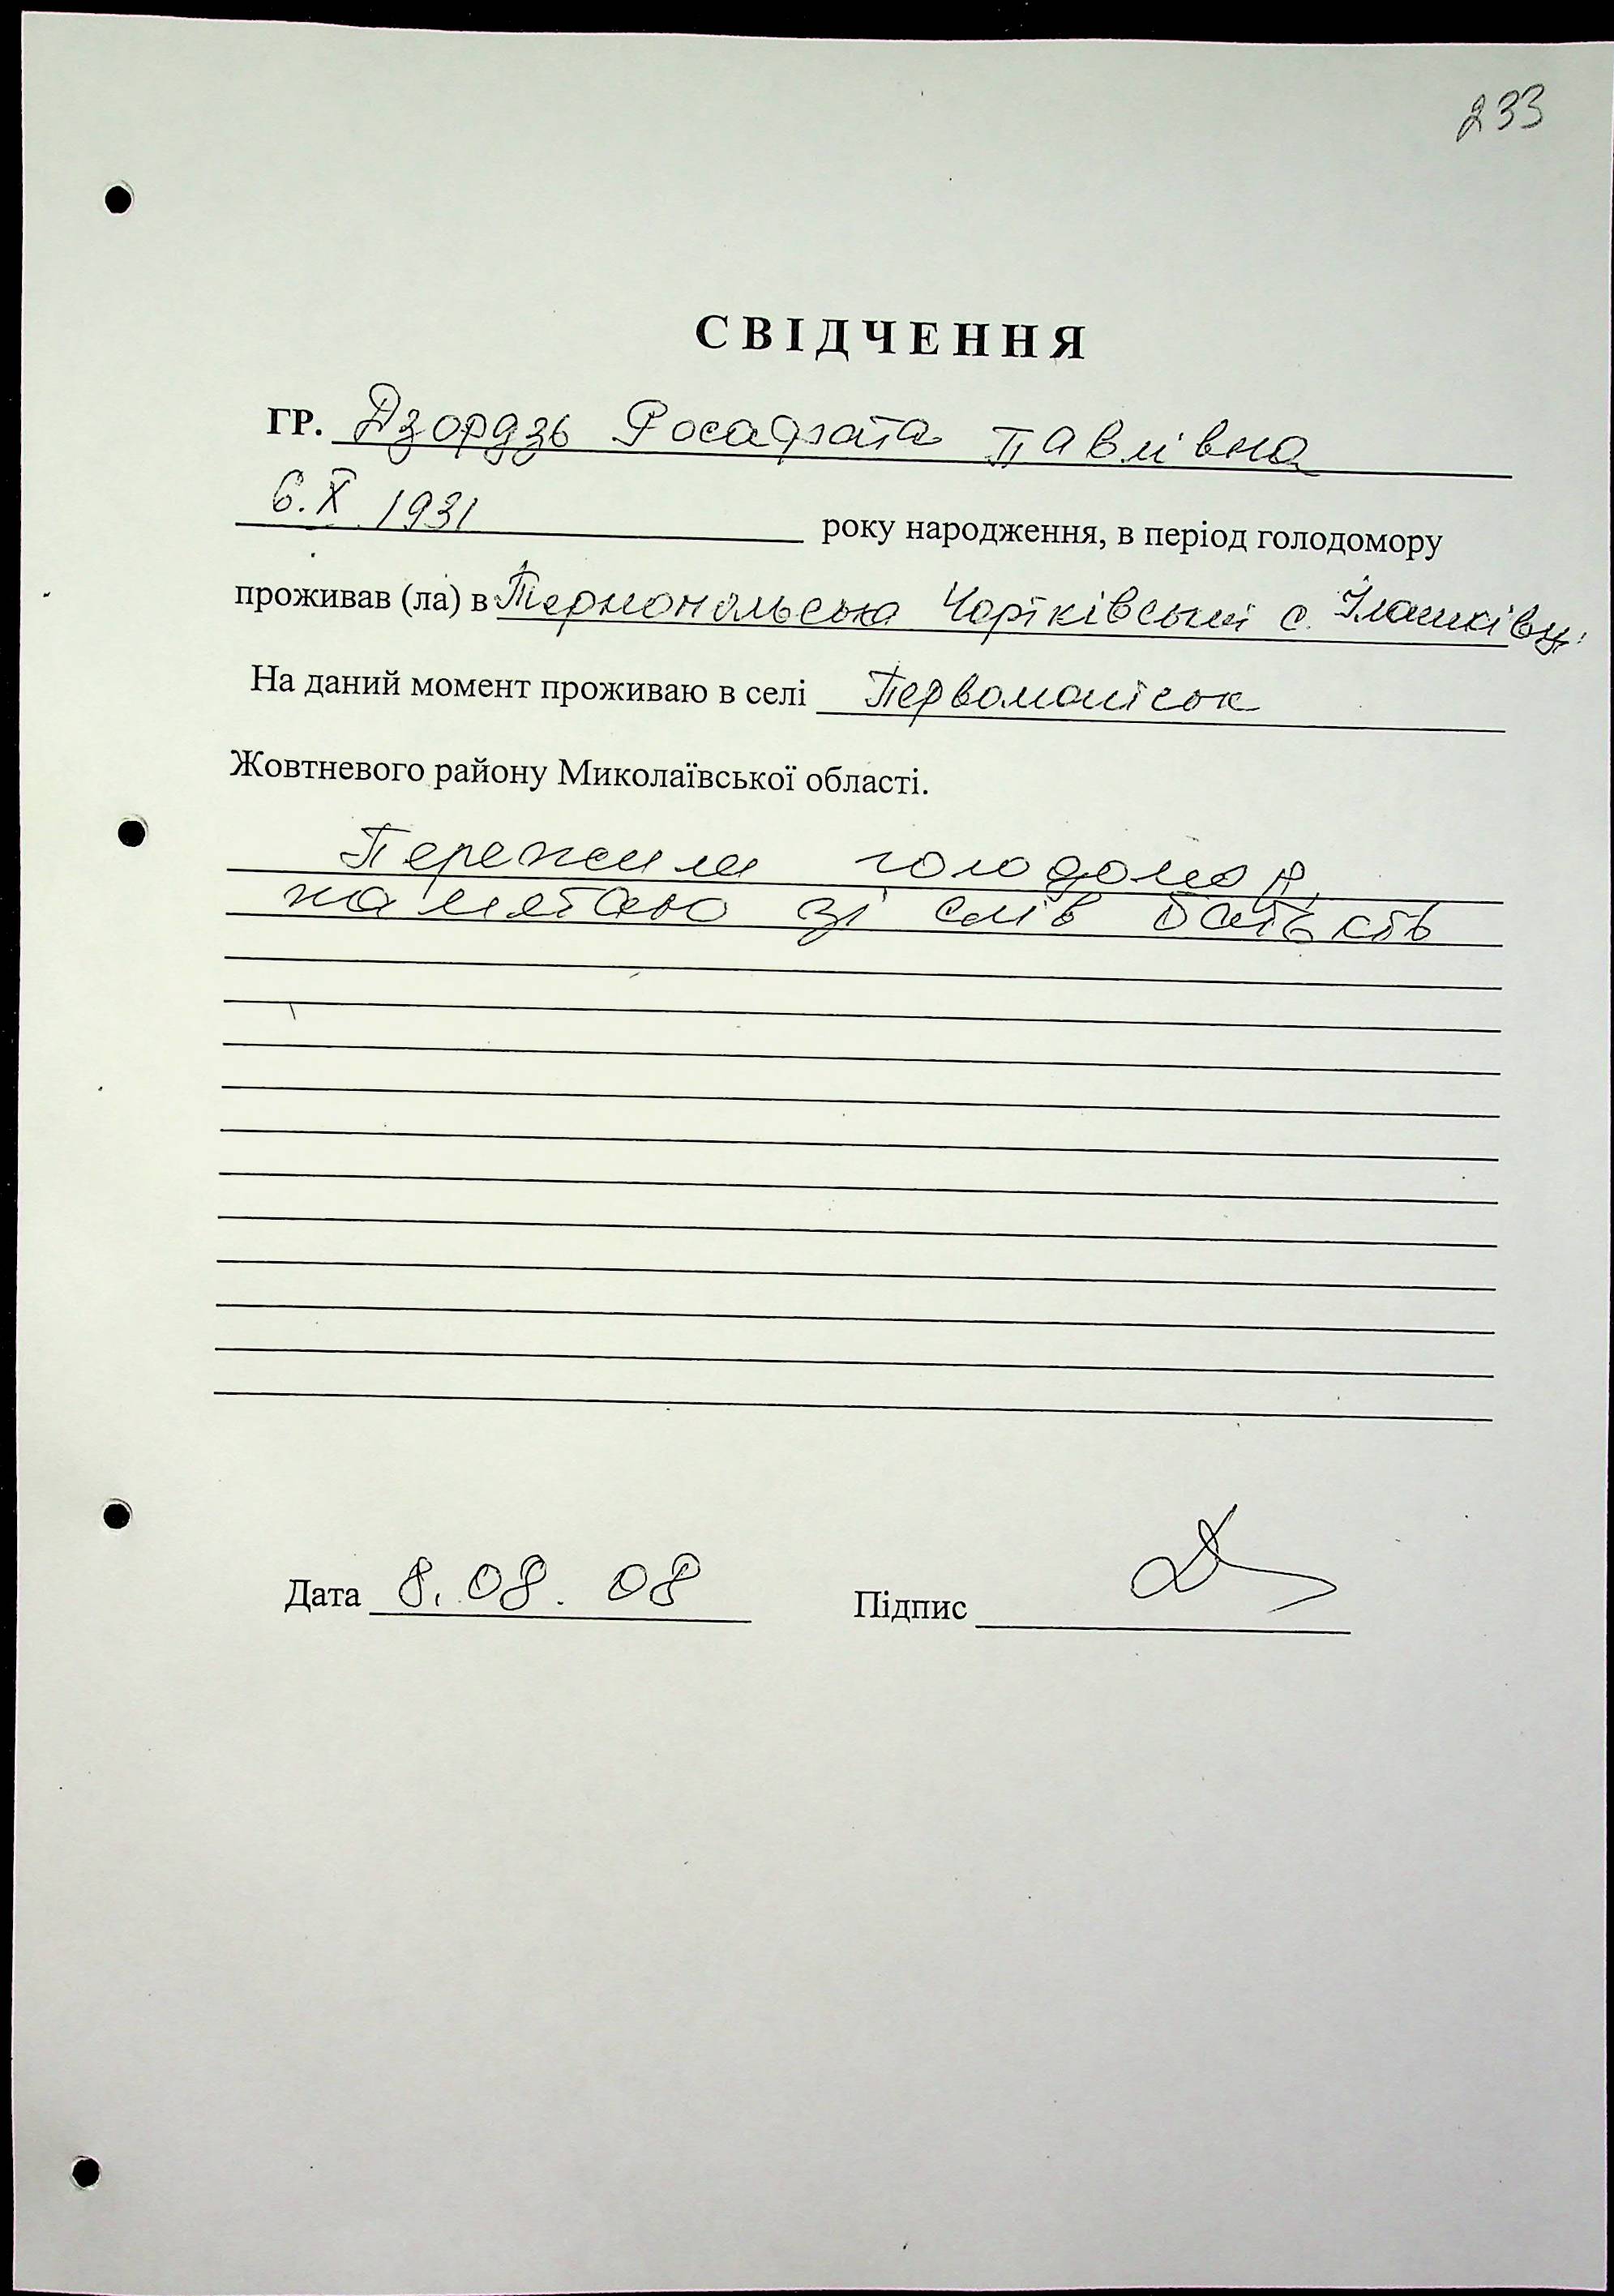 233
СВІДЧЕННЯ
ГР. Дзордзь Росафата Павлівна
6.X 1931 року народження, в період голодомору
проживав (ла) в Тернопольська Чортківський с. Улашківці
На даний момент проживаю в селі Первомайськ
Жовтневого району Миколаївської області.
Пережили голодомор,
памятаю зі слів батьків
Дата 8.08.08 Підпис